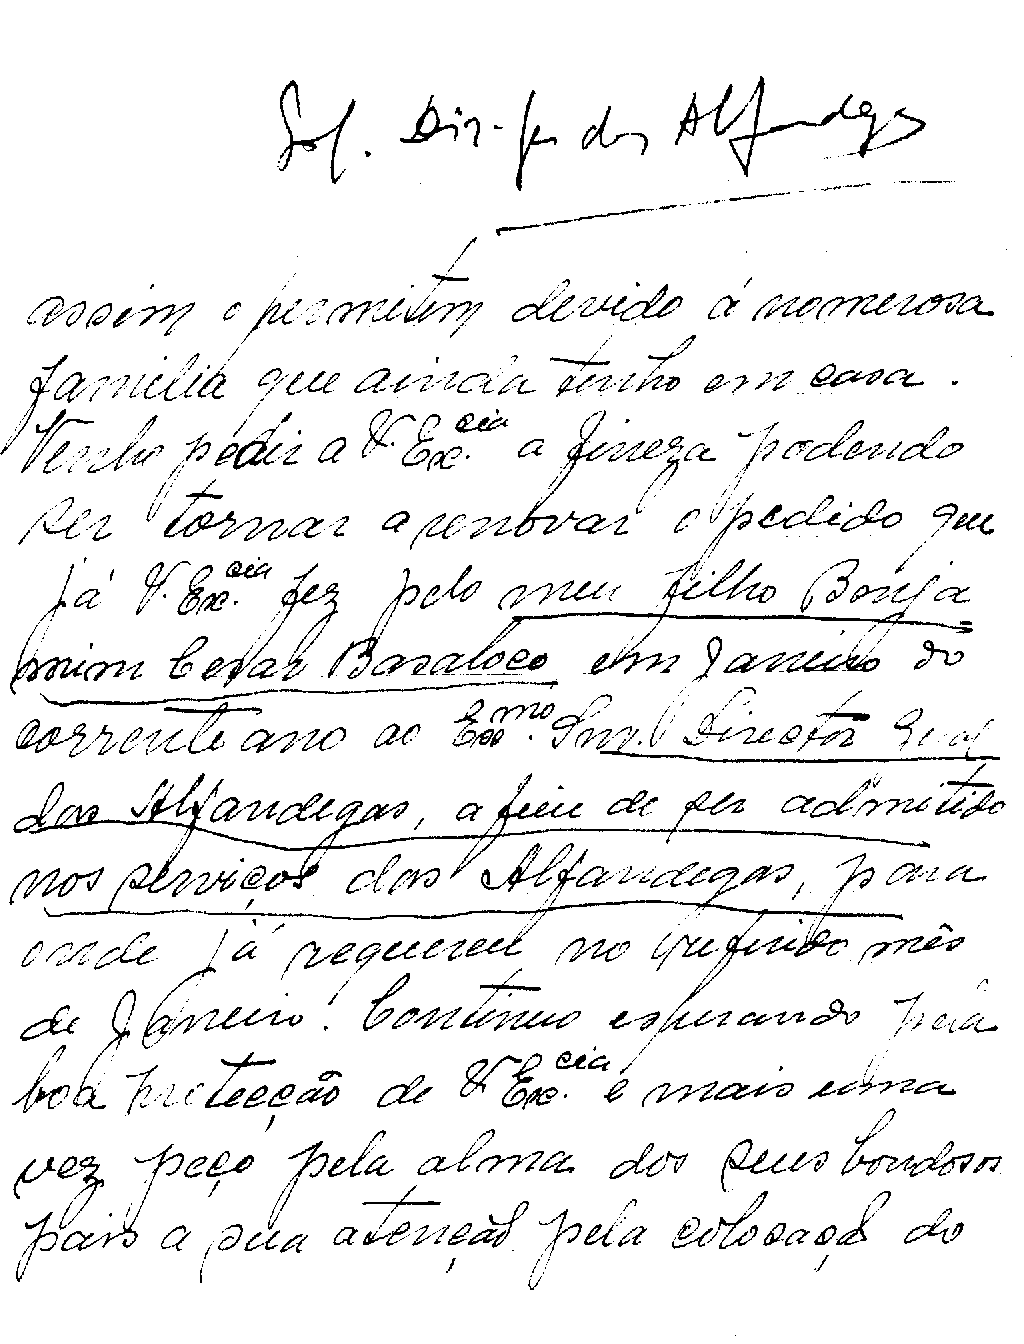 Sol. Dir-Ger das Alfandegas
assim o permitem devido á nomerosa
familia que ainda tenho em casa.
Venho pedir a V. Ex.cia a fineza podendo
ser tornar a renovar o pedido que
já V. Ex.cia fez pelo meu filho Benja
mim Cesar Basaloco em Janeiro do
corrente ano ao Exmo. Snr. Director Geral
das Alfandegas, a fim de ser admitido
nos serviços das Alfandegas, para
onde já requereu no referido mês
de Janeiro. Continuo esperando pela
boa protecção de V. Ex.cia e mais uma
vez peço pela alma dos seus bondosos
pais a sua atenção pela colocação do